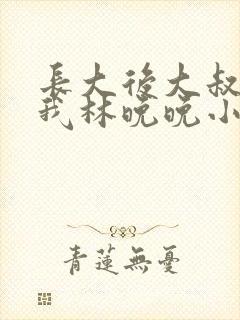 長大後大叔
我林晚晚小
青蓮無憂